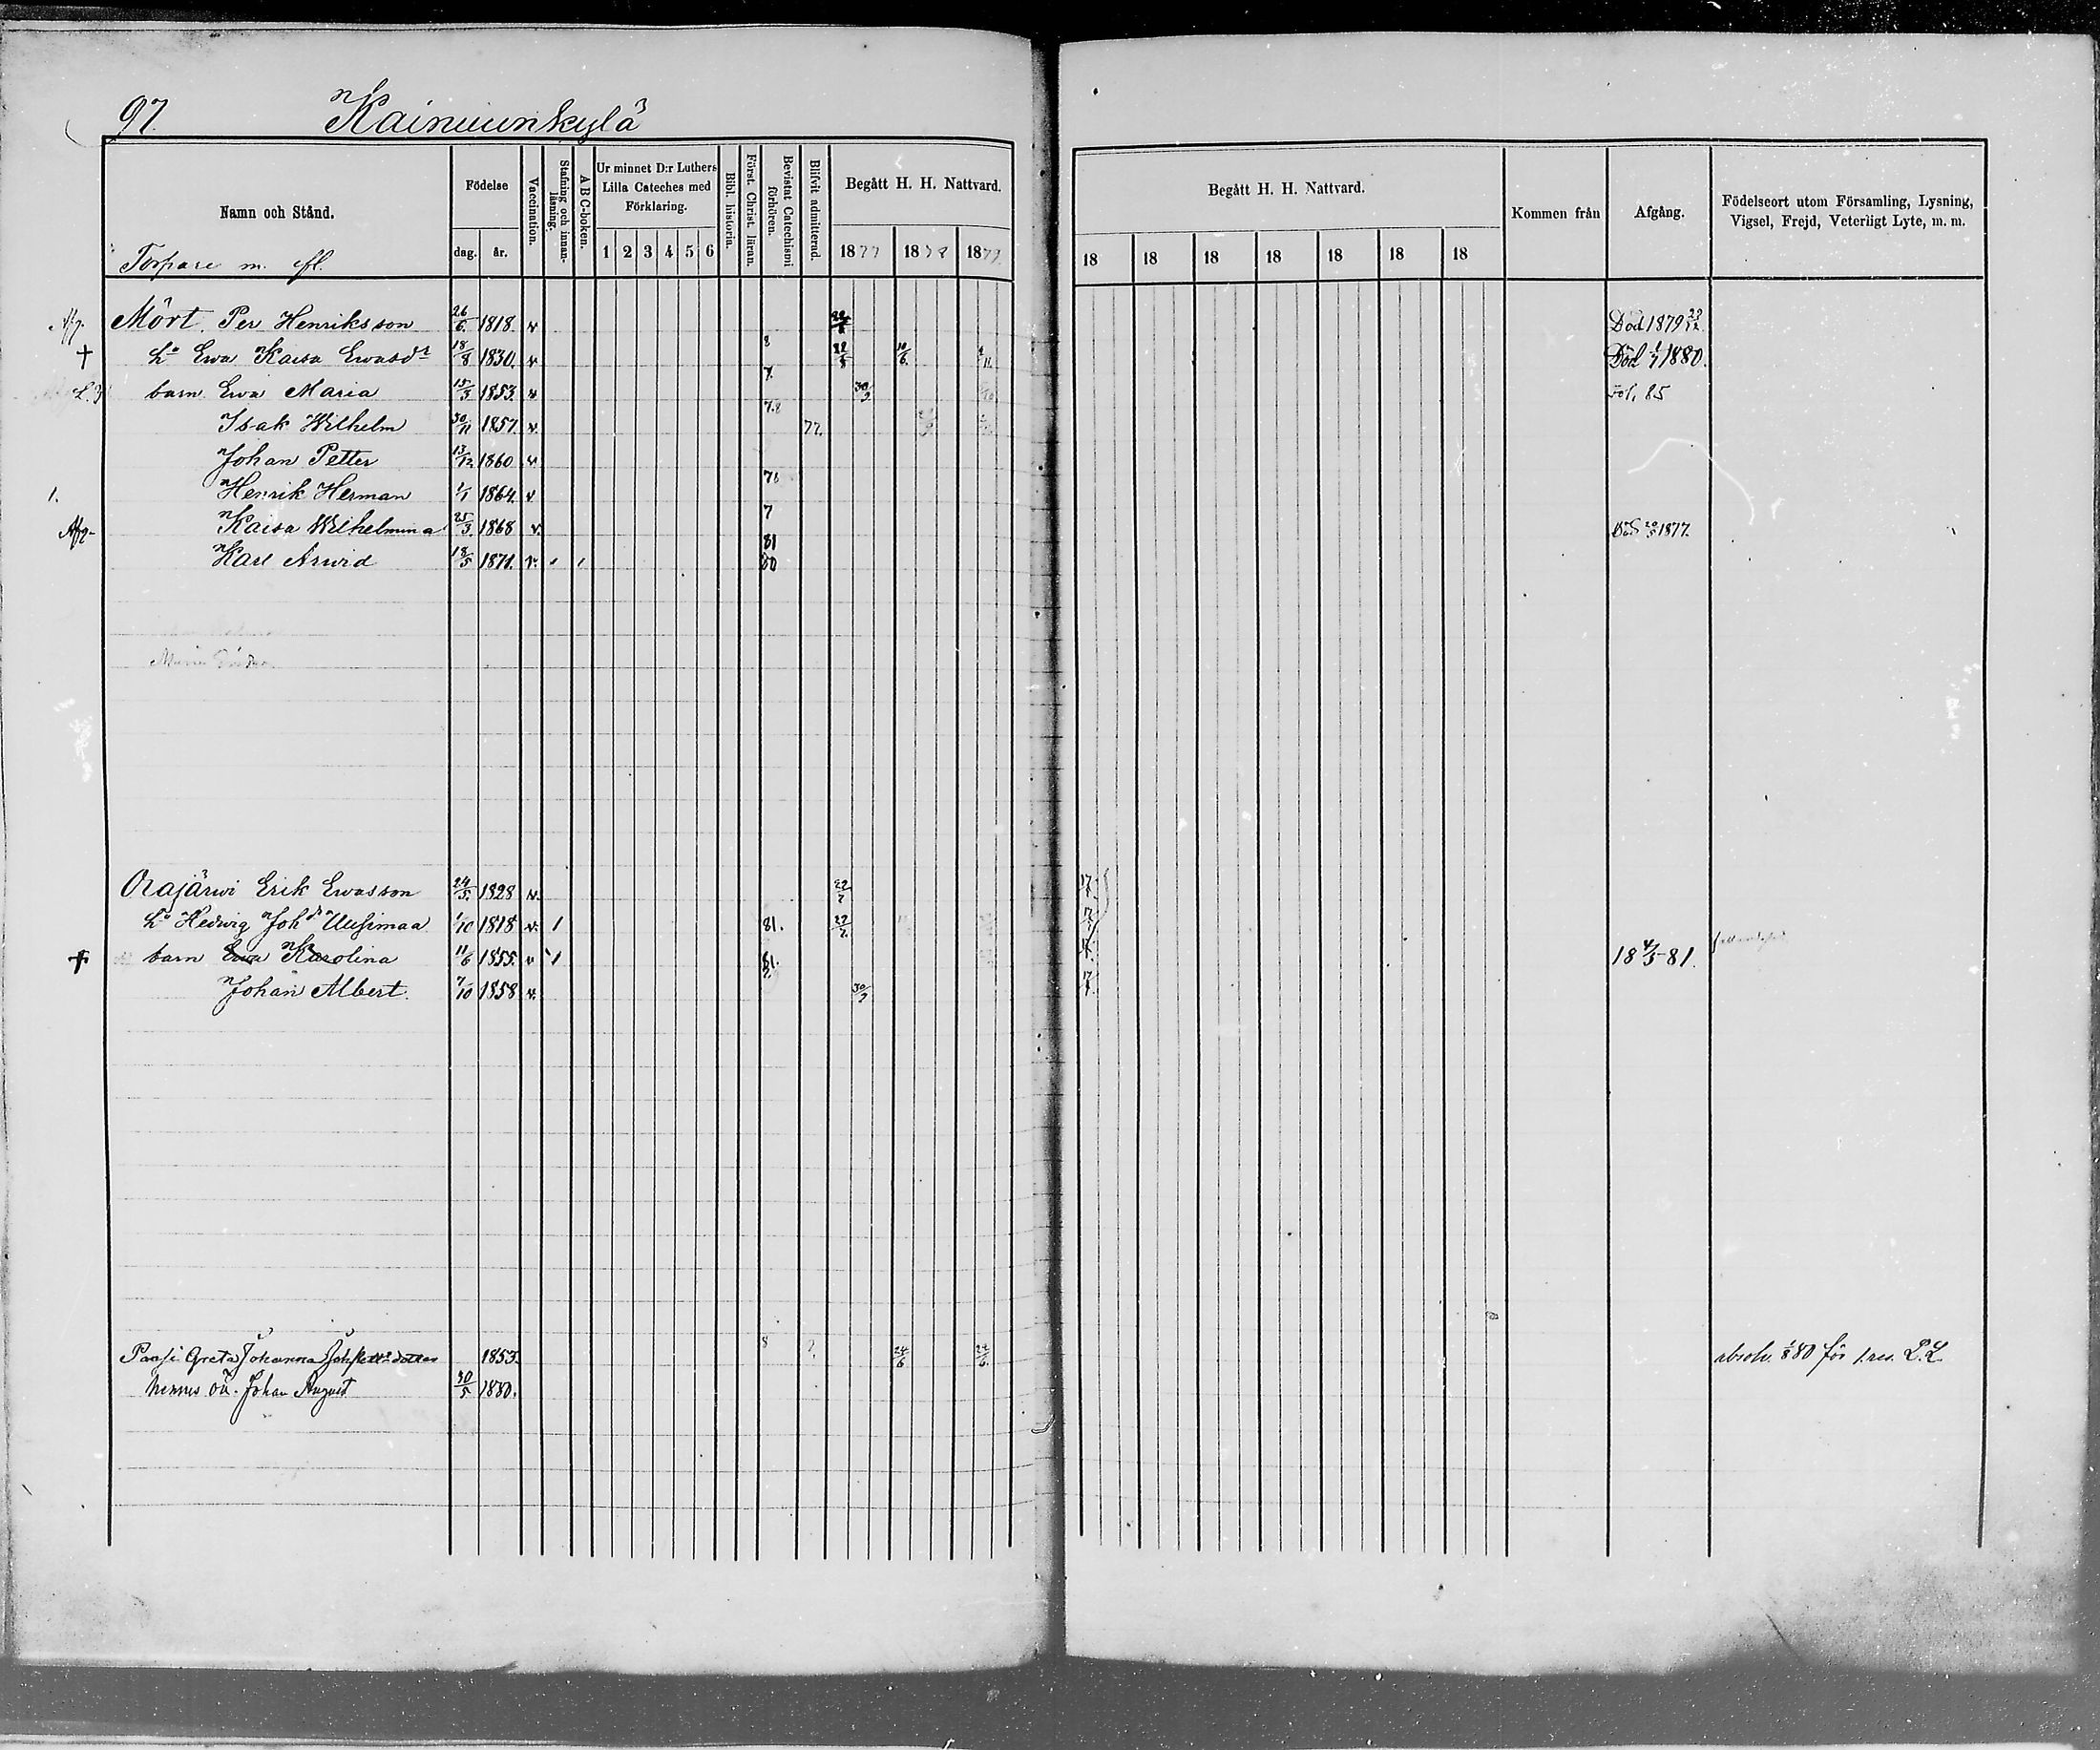 97. Kainuunkylä
Namn och Stånd.
Torpare m. fl.
Födelse
dag. år.
Vaccination.
Stafning och innanläsning.
A B C-boken.
Ur minnet D:r Luthers Lilla Cateches med Förklaring.
1 2 3 4 5 6
Bibl. historia.
Först. Christ. läran.
Bevistat Catechismi förhören.
Blifvit admitterad.
Begått H. H. Nattvard.
1877 1878 1879
Begått H. H. Nattvard.
18 18 18 18 18 18 18
Kommen från
Afgång.
Födelseort utom Församling, Lysning, Vigsel, Frejd, Veterligt Lyte, m. m.
Mört. Per Henriksson 26/6 1818 v Död 1879
† h:o Ewa Kaisa Ewasdr 18/8 1830. v 10/6 Död 1/7 1880.
barn Ewa Maria 15/3 1853. v 7. 30/9 Fol. 85
Isak Wilhelm 30/11 1857. v. 7.8 77.
Johan Petter 13/12 1860 v
1. Henrik Herman 1/1 1864. v 78
Afg. Kaisa Wilhelmina 25/3 1868 v. 7 Död 20/5 1877.
Karl Arwid 18/5 1871. v. 81 80
Orajärwi Erik Ewasson 24/5 1828 v. 22/7
h:o Hedwig Johdr Uusimaa 1/10 1818 v. 1 81. 22/7
† barn Ewa Karolina 11/6 1855. v 1 81. 18 4/5 81.
Johan Albert. 7/10 1858 v. 30/9
Paasi Greta Johanna 1853. 8 24/6 24/6 absolv. 1/8 80 för 1. res. L.L
hennes oä. Johan August 30/5 1880.